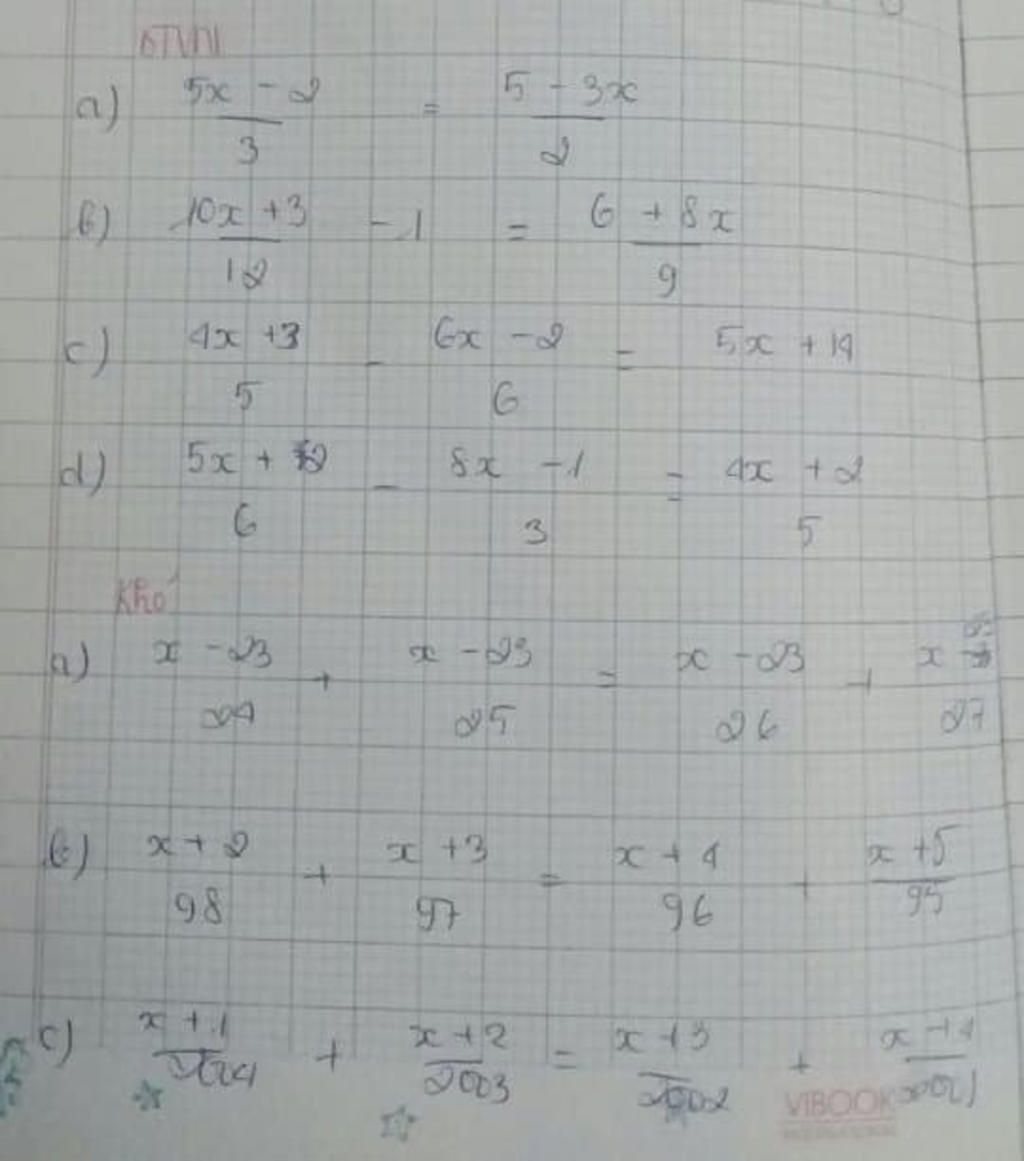 BTVN
a) 5x - 2 / 3 = 5 - 3x / 2
b) 10x + 3 / 12 - 1 = 6 + 8x / 9
c) 4x + 3 / 5 - 6x - 2 / 6 = 5x + 14
d) 5x + 2 / 6 - 8x - 1 / 3 = 4x + 2 / 5
Khó
a) x - 23 / 24 + x - 23 / 25 = x - 23 / 26 + x / 27
b) x + 2 / 98 + x + 3 / 97 = x + 4 / 96 + x + 5 / 95
c) x + 1 / 2004 + x + 2 / 2003 = x + 3 / 2002 + x + 4 / 2001
VIBOOK